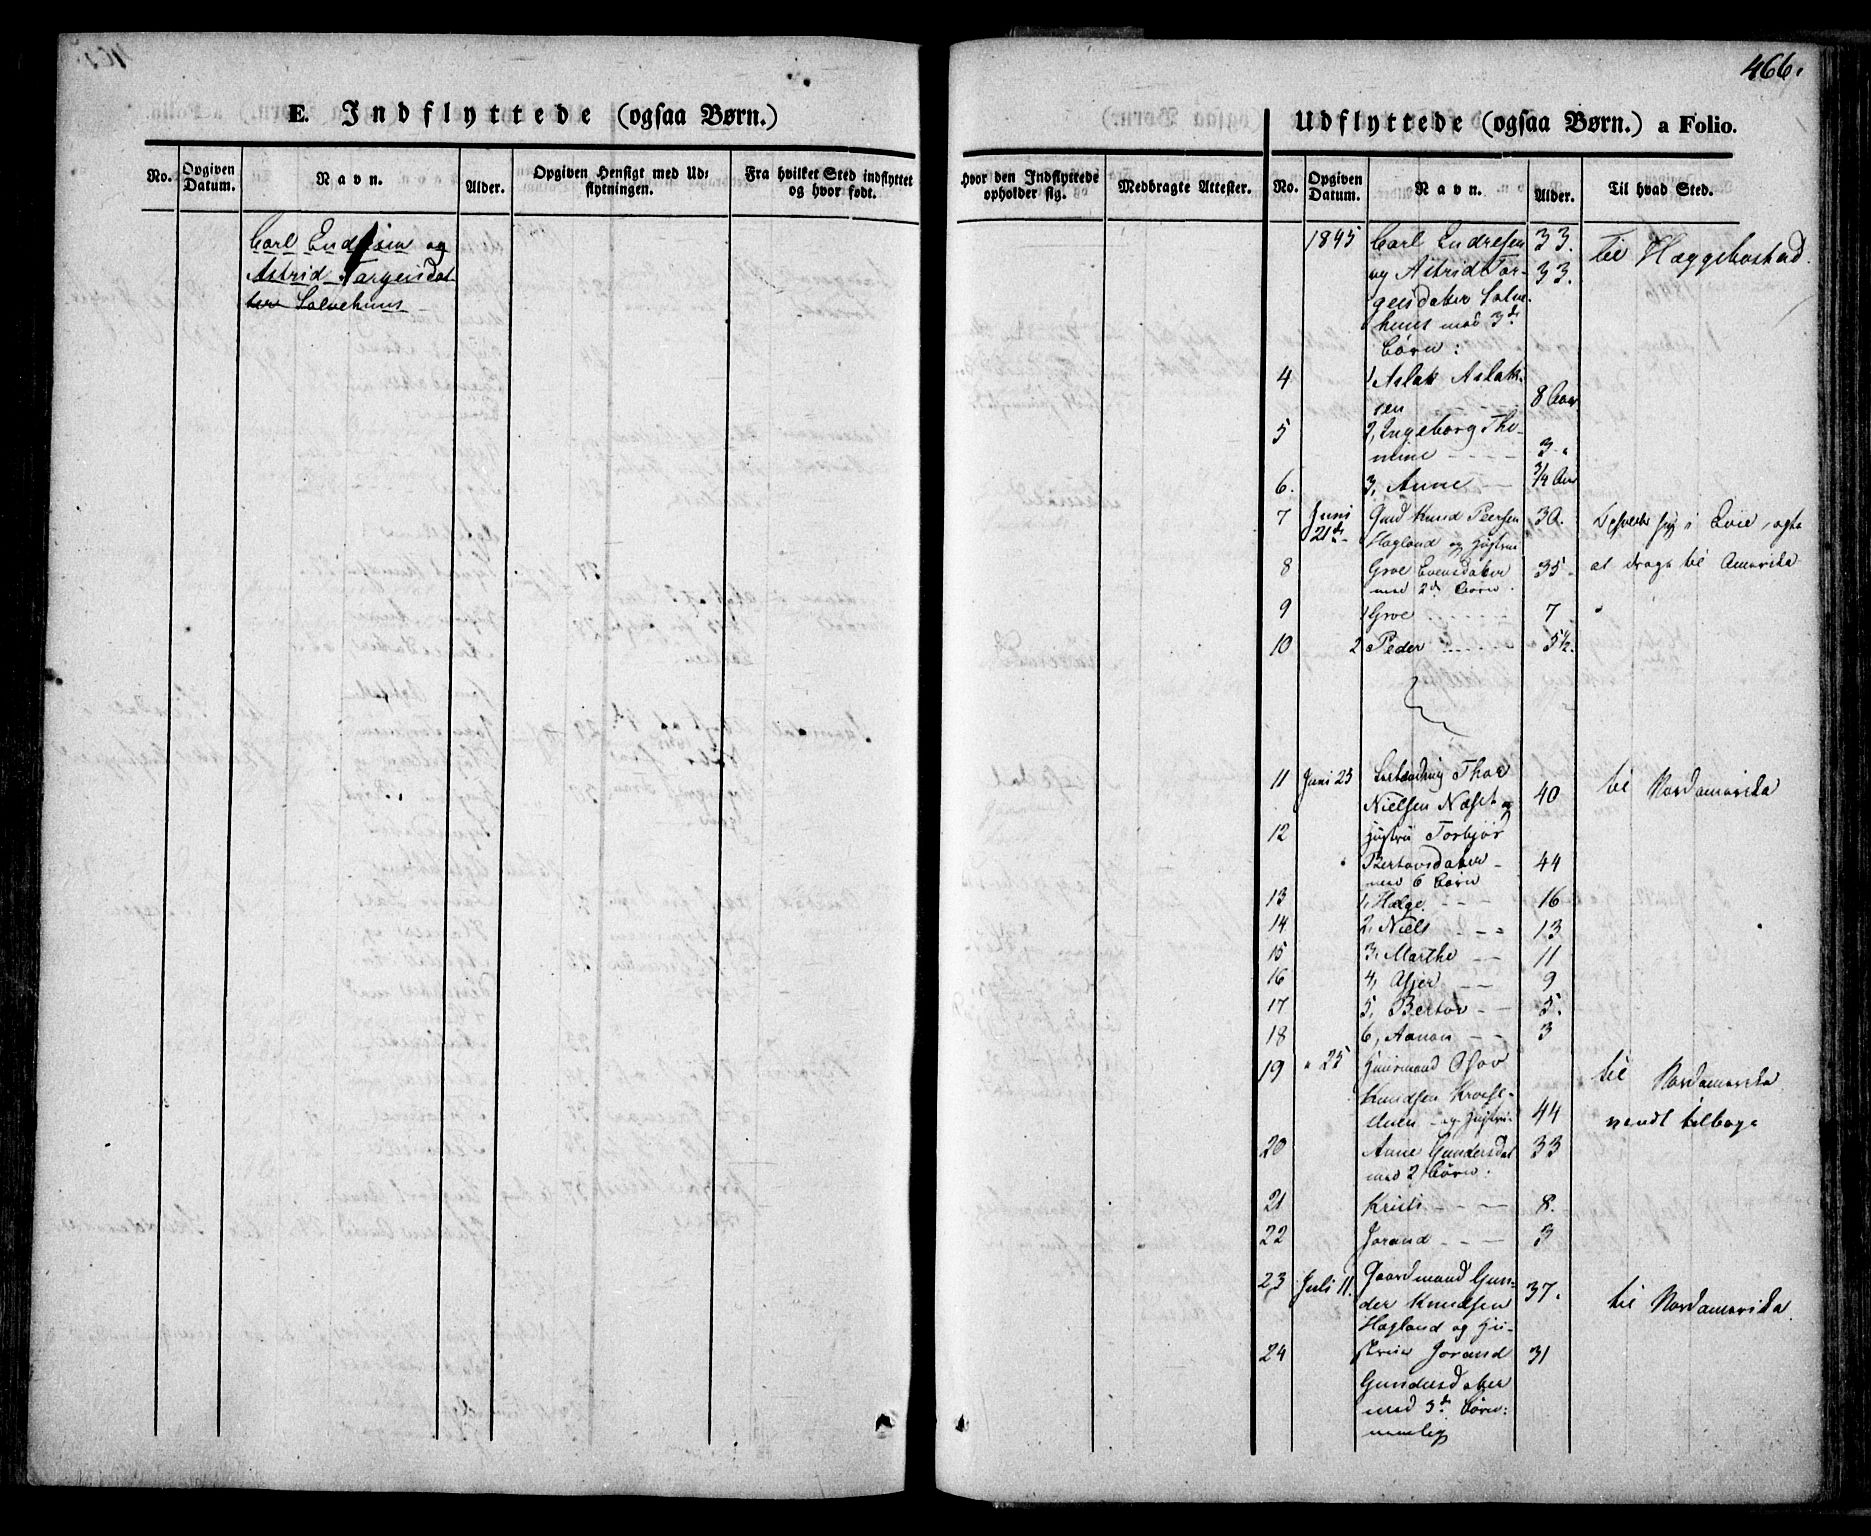 466.
E. Indflyttede (ogsaa Børn.)
No.
Opgiven Datum.
Navn.
Alder.
Opgiven Hensigt med Ud:
flytningen.
Fra hvilket Sted indflyttet
og hvor født.
Carl Endresen og
Astrid Targersdat
ter Solvehuus
Udflyttede (ogsaa Børn.) a Folio.
Hvor den Indflyttede
opholder sig.
Medbragte Attester.
No.
Opgiven Datum.
Navn.
Alder.
Til hvad Sted.
1845 Carl Endresen 33. til Hæggebostad.
og Astrid Tor- 33.
gersdatter Solve-
huus med 3de
Børn:
4 1, Aslak Aslak-
sen 8 Aar
5 2, Ingeborg Tho-
mine 3 "
6. 3, Anne 3/4 Aar
7 Juni Gmd Knud Peersen 30. i Evie, agte
21de Hægland og Hustrue at drage til Amerika
8 Groe Evensdatter 35
med 2de Børn.
9 1 Groe 7 "
10 2 Peder 5½.
11 Juni 23 Thor
Nielsen Næset og 40 til Nordamerika
12 Hustru Torbjør
Bertorsdatter 44
med 6 Børn
13 1, Helge 16
14 2, Niels 13
15 3, Marthe 11
16 4, Asjer 9
17 5, Bertor 5.
18 6, Aanon 3
19 " 25 Huusmand
Knudsen til Nordamerika
og Hustru 44 vendt tilbage
20 Anne Gundersdat 33
med 2 Børn:
21 Kristi 8.
22 Jorand 3
23 Juli 11. Gaardmand Gun-
der Knudsen 37. til Nordamerika
Hægland og Hu-
24 strue Jorand 31
Gundersdatter
med 3de Børn:
nemlig